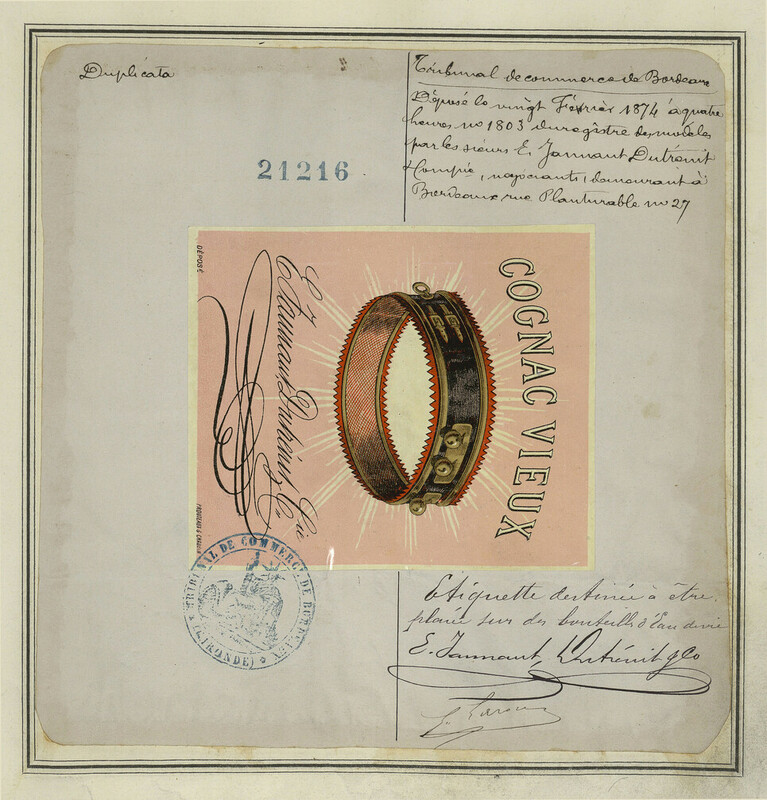 Duplicata
Tribunal de commerce de Bordeaux
Déposé le vingt Février 1874 à quatre
heures no 1803 du registre des modèles
par les sieurs E. Jannaut Dutrénit
& Compie, négociants, demeurant à
Bordeaux rue Planturable no 27
21216
COGNAC VIEUX
E Jannaut Dutrénit & Cie
DÉPOSÉ
TRIBUNAL DE COMMERCE DE BORDEAUX
(GIRONDE)
Etiquette destinée à être
placée sur des bouteilles d'Eau de vie
E. Jannaut, Dutrénit & Co